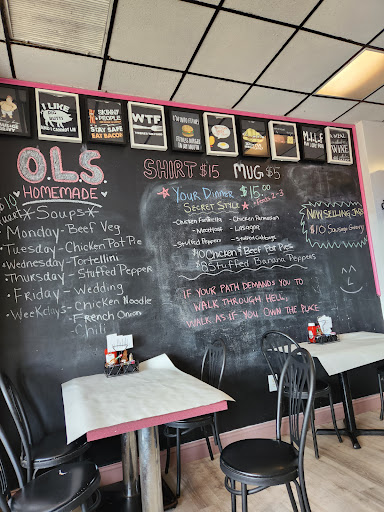 I LIKE
PIG BUTTS
AND I CANNOT LIE
SKINNY
PEOPLE
STAY SAFE
EAT BACON
WTF
M.I.L.F.
O.L.S
HOMEMADE
*Soups*
Monday-Beef Veg
Tuesday-Chicken Pot Pie
Wednesday-Tortellini
Thursday-Stuffed Pepper
Friday-Wedding
Weekdays-Chicken Noodle
-French Onion
-Chili
$10
SHIRT $15 MUG $5
Your Dinner $15.00
Secret Style
-Meatloaf -Lasagna
-Stuffed Peppers -Stuffed Cabbage
$10 Chicken & Beef Pot Pies
$8 Stuffed Banana Peppers
IF YOUR PATH DEMANDS YOU TO
WALK THROUGH HELL,
WALK AS IF YOU OWN THE PLACE
NOW SELLING SUBS
$10 Sausage Gravy